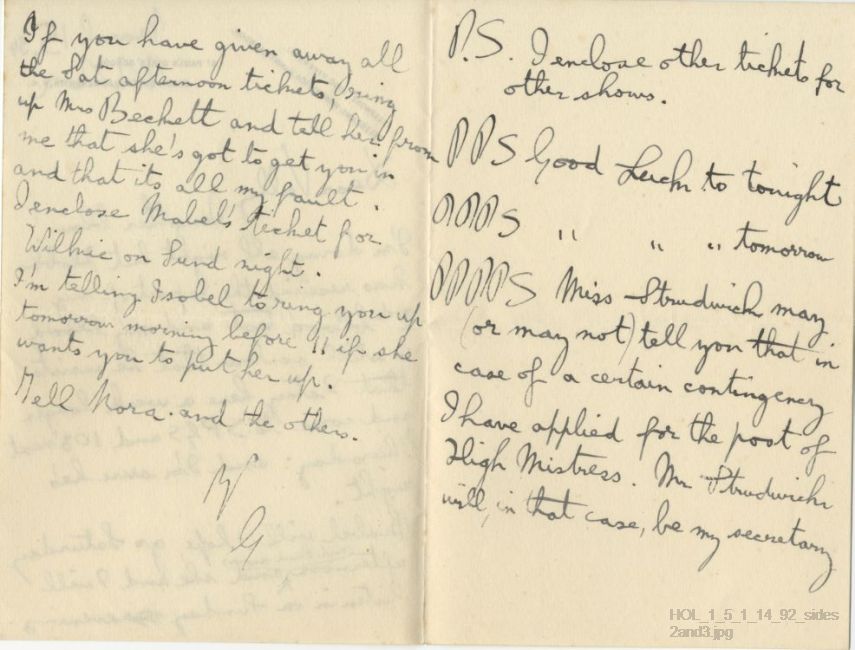 If you have given away all
the Sat afternoon tickets, ring
up Mrs Beckett and tell her from
me that she's got to get you in
and that its all my fault.
I enclose Mabel's ticket for
Wilkie on Sund night.
I'm telling Isobel to ring you up
tomorrow morning before 11 if she
wants you to put her up.
Tell Nora and the others.
G
P.S. I enclose other tickets for
other shows.
PPS Good Luck to tonight
PPPS " " " tomorrow
PPPPS Miss Strudwick may
(or may not) tell you that in
case of a certain contingency
I have applied for the post of
High Mistress. Mr Strudwick
will, in that case, be my secretary
HOL_1_5_1_14_92_sides
2and3.jpg